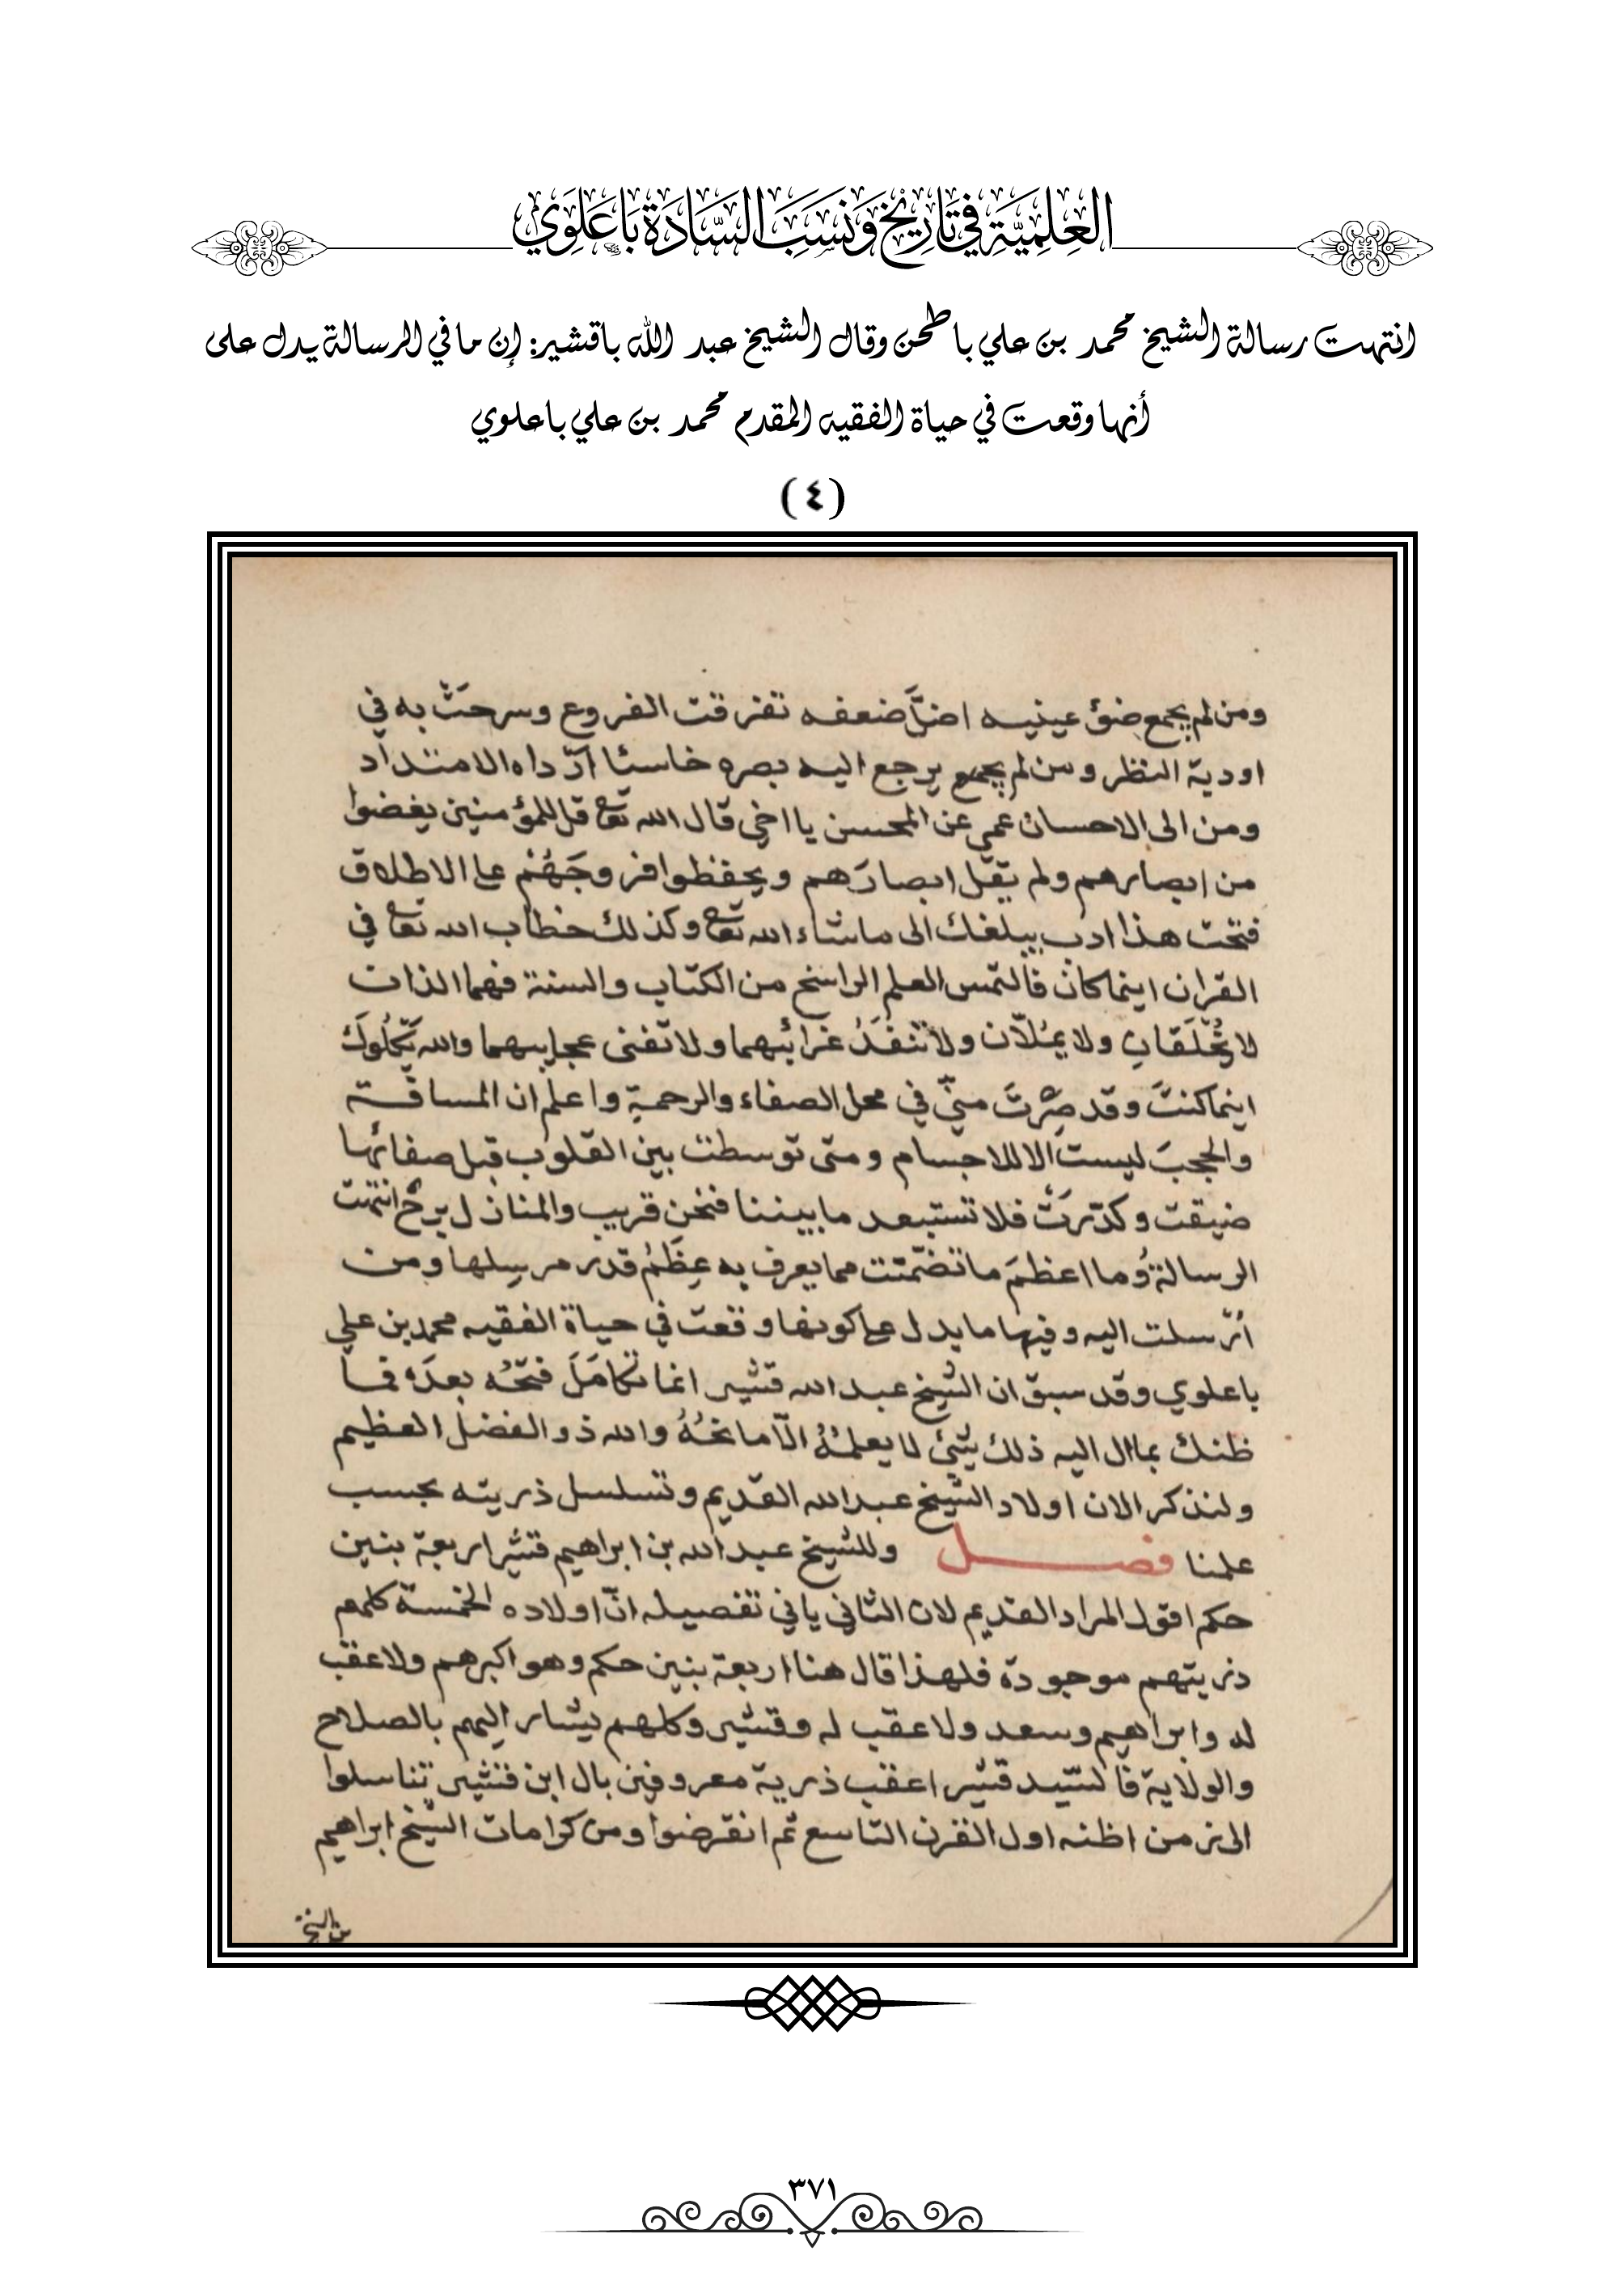 العِلمِيَّة في تَارِيخ وَنَسَب السَّادَة بَاعَلَوِي
انتهت رسالة الشيخ محمد بن علي باطحن وقال الشيخ عبد الله باقشير: إن ما في الرسالة يدل على
أنها وقعت في حياة الفقيه المقدم محمد بن علي باعلوي
(٤)
ومن لم يجمع ضوء عينيه اضلَّ ضعفه تفرقت الفروع وسرحت به في
اودية النظر ومن لم يجمع يرجع اليه بصره خاسئا اذ داه الامتداد
ومن الى الاحسان عمي عن المحسن يا اخي قال الله تعا قل للمؤمنين يغضوا
من ابصارهم ولم يقل ابصارَهم ويحفظوا فروجَهُمْ على الاطلاق
فتحت هذا ادب يبلغك الى ما شاء الله تعا وكذلك خطاب الله تعا في
القران اينما كان فالتمس العلم الراسخ من الكتاب والسنة فهما الذان
لا يخْلَقان ولا يمُلاّن ولا تنفَدُ غرائبهما ولا تفنى عجايبهما والله يَكْلُوكَ
اينما كنتَ وقد صِرْتَ منيّ في محل الصفاء والرحمةِ واعلم ان المسافة
والحجبَ ليست الا للاجسام ومتى توسطت بين القلوب قبل صفائها
ضيقت وكدّرَتْ فلا تستبعد ما بيننا فنحن قريب والمنازل برح انتهت
الرسالةُ وما اعظمَ ما تضمّنت مما يعرف به عِظَمُ قدر مرسِلها ومن
أرسلت اليه وفيها ما يدل على كونها وقعت في حياة الفقيه محمد بن علي
باعلوي وقد سبق ان الشيخ عبد الله قشير انما تكامَلَ فتحُه بعدَهُ فما
ظنك بما ال اليه ذلك شيء لا يعلمُهُ الاّ مانحُهُ والله ذو الفضل العظيم
ولنذكر الان اولاد الشيخ عبد الله القديم وتسلسل ذريته بحسب
علمنا فصل وللشيخ عبد الله بن ابراهيم قشير اربعة بنين
حكم اقول المراد القديم لان الثاني ياتي تفصيله انّ اولاده الخمسة كلهم
ذريتهم موجودة فلهذا قال هنا اربعة بنين حكم وهو اكبرهم ولا عقب
له وابراهيم وسعد ولا عقب له وقشير وكلهم يشار اليهم بالصلاح
والولاية فالسّيد قشير اعقب ذرية معروفين بال ابن قشير تناسلوا
الى زمن اظنه اول القرن التاسع ثم انقرضوا ومن كرامات الشيخ ابراهيم
بن الشيخ
٣٧١